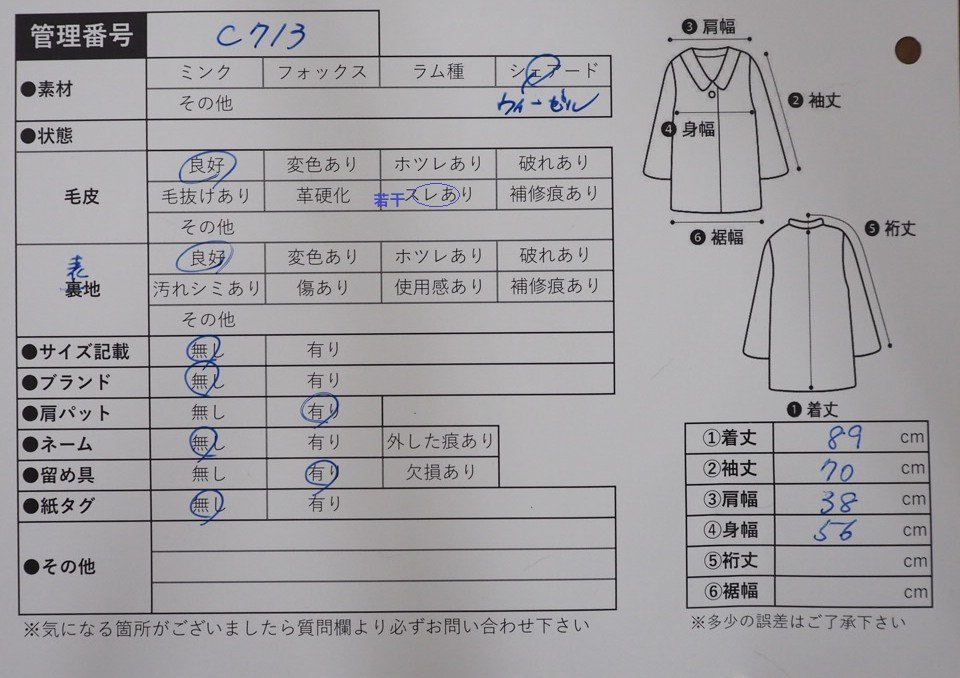 管理番号 C713
●素材 ミンク フォックス ラム種 シェアード
その他 ウィーゼル
●状態
毛皮 良好 変色あり ホツレあり 破れあり
毛抜けあり 革硬化 若干スレあり 補修痕あり
その他
表
裏地 良好 変色あり ホツレあり 破れあり
汚れシミあり 傷あり 使用感あり 補修痕あり
その他
●サイズ記載 無し 有り
●ブランド 無し 有り
●肩パット 無し 有り
●ネーム 無し 有り 外した痕あり
●留め具 無し 有り 欠損あり
●紙タグ 無し 有り
●その他
※気になる箇所がございましたら質問欄より必ずお問い合わせ下さい
❸肩幅
❷袖丈
❹身幅
❻裾幅
❺裄丈
❶着丈
①着丈 89 cm
②袖丈 70 cm
③肩幅 38 cm
④身幅 56 cm
⑤裄丈 cm
⑥裾幅 cm
※多少の誤差はご了承下さい